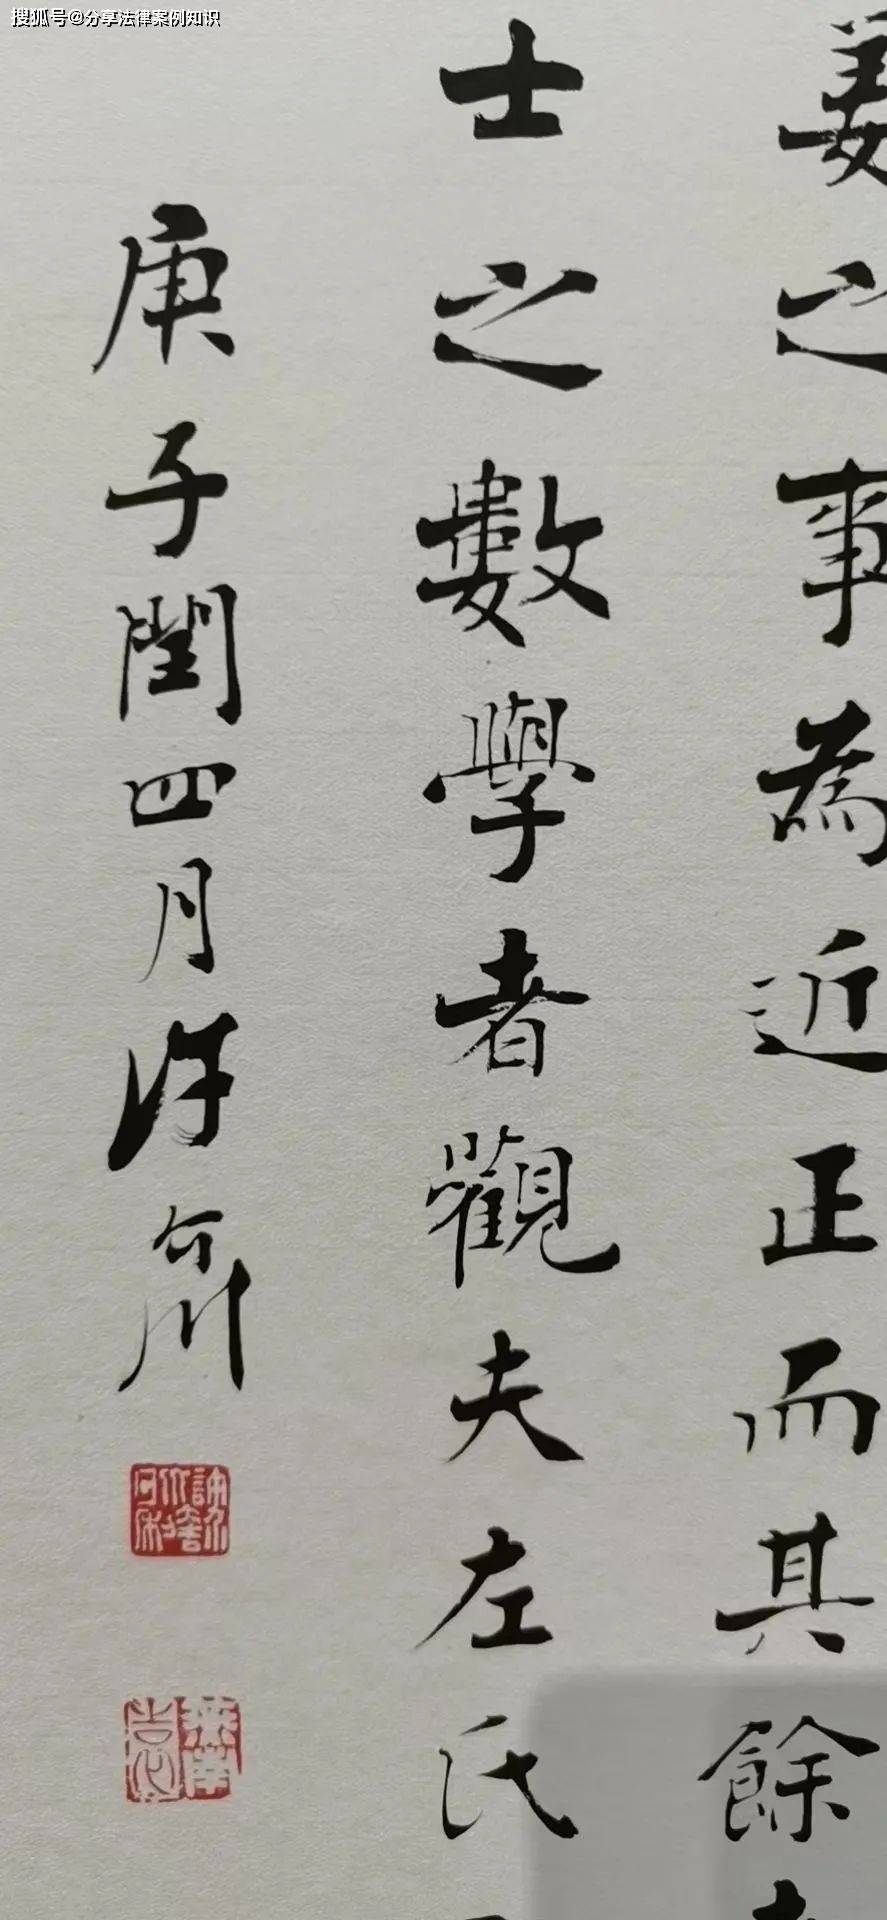 搜狐号@分享法律案例知识
姜之事為近正而其餘
士之數學者觀夫左氏
庚子閏四月